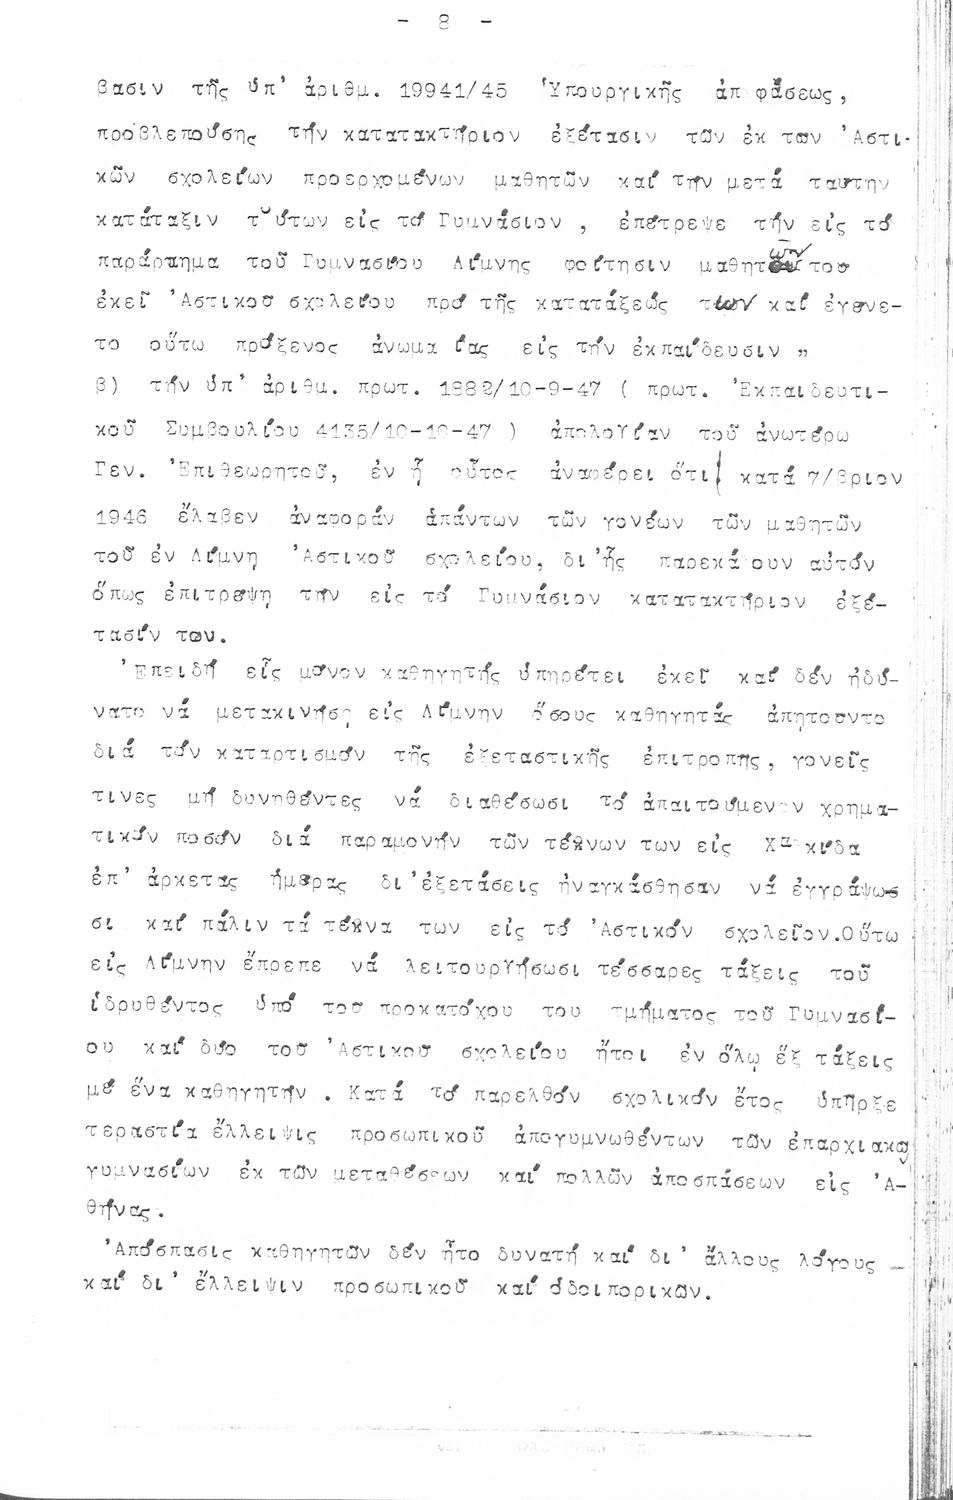 - 8 -
βασιν τῆς ὑπ' ἀριθμ. 19941/45 Ὑπουργικῆς ἀπ φάσεως,
προβλεπούσης τήν κατατακτήριον ἐξέτασιν τῶν ἐκ των Ἀστι-
κῶν σχολείων προερχομένων μαθητῶν καί τήν μετά ταυτην
κατάταξιν τούτων εἰς τό Γυμνάσιον , ἐπέτρεψε τήν εἰς τό
παράρτημα τοῦ Γυμνασίου Λίμνης φοίτησιν μαθητῶν του
ἐκεῖ Ἀστικοῦ σχολείου πρό τῆς κατατάξεώς των καί ἐγενε-
το οὕτω πρόξενος ἀνωμα ίας εἰς τήν ἐκπαίδευσιν "
β) τήν ὑπ' ἀριθμ. πρωτ. 1882/10-9-47 ( πρωτ. Ἐκπαιδευτι-
κοῦ Συμβουλίου 4135/10-10-47 ) ἀπολογίαν τοῦ ἀνωτέρω
Γεν. Ἐπιθεωρητοῦ, ἐν ᾗ οὗτος ἀναφέρει ὅτι κατά 7/βριον
1946 ἔλαβεν ἀναφοράν ἁπάντων τῶν γονέων τῶν μαθητῶν
τοῦ ἐν Λίμνῃ Ἀστικοῦ σχολείου, δι'ἧς παρεκά ουν αὐτόν
ὅπως ἐπιτρεψῃ τήν εἰς τό Γυμνάσιον κατατακτήριον ἐξέ-
τασίν των.
Ἐπειδή εἷς μόνον καθηγητής ὑπηρέτει ἐκεῖ καί δέν ἠδύ-
νατο νά μετακινήσῃ εἰς Λίμνην ὅσους καθηγητάς ἀπητοῦντο
διά τόν καταρτισμόν τῆς ἐξεταστικῆς ἐπιτροπῆς, γονεῖς
τινες μή δυνηθέντες νά διαθέσωσι τό ἀπαιτούμενον χρημα-
τικόν ποσόν διά παραμονήν τῶν τέκνων των εἰς Χα κίδα
ἐπ' ἀρκετας ἡμέρας δι'ἐξετάσεις ἠναγκάσθησαν νά ἐγγράψω
σι καί πάλιν τά τέκνα των εἰς τό Ἀστικόν σχολεῖον.Οὕτω
εἰς Λίμνην ἔπρεπε νά λειτουργήσωσι τέσσαρες τάξεις τοῦ
ἱδρυθέντος ὑπό τοῦ προκατόχου του τμήματος τοῦ Γυμνασί-
ου καί δυο τοῦ Ἀστικοῦ σχολείου ἤτοι ἐν ὅλῳ ἕξ τάξεις
μέ ἕνα καθηγητήν . Κατά τό παρελθόν σχολικόν ἔτος ὑπῆρξε
τεραστία ἔλλειψις προσωπικοῦ ἀπογυμνωθέντων τῶν ἐπαρχιακῶν
γυμνασίων ἐκ τῶν μεταθέσεων καί πολλῶν ἀποσπάσεων εἰς Ἀ-
θήνας.
Ἀπόσπασις καθηγητῶν δέν ἦτο δυνατή καί δι' ἄλλους λόγους _
καί δι' ἔλλειψιν προσωπικοῦ καί ὁδοιπορικῶν.